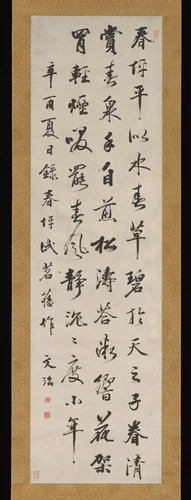 春坪平似水春草碧於天之子眷清
賞春泉手自煎松濤答漸響花架
罥輕煙啜罷春風靜沈〻度小年
辛酉夏日錄春坪試茗舊作 文治